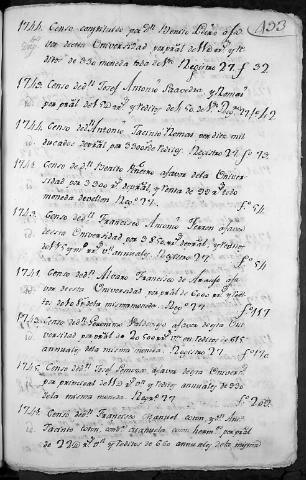 433
1744. Censo constituido por Dn. Benito Piñeiro a fa
vor desta Universidad pr. pral. de 11 D rs. y re
ditos de 330 moneda toda de Vn. Registro 27. f.° 32
1743. Censo de Dn. Josef Antonio Saavedra y Romai
por pral. de 15 D rs. y reditos de 450 de Vn. Reg.° 27 f.° 42
1744. Censo de Antonio Jacinto Romai por diez mil
ducados de pral. por 3300 rs. de reditos. Registro 27 f.° 73.
1744. Censo de Dn. Benito Piñeiro a favor dela Univer
sidad por 3300 rs. de pral. y renta de 99 rs. todo
moneda de vellon. Reg.° 27. f.° 54.
1743. Censo de Dn. Francisco Antonio a favor
desta Universidad por de pral. y reditos
Registro 27 f.° 54
1741. Censo de Dn. Alvaro Francisco de Araujo a fa
vor desta Universidad por pral. de 600 rs. y redi
tos de 18 rs. dela misma moneda. Reg.° 27 f.° 117
1743. Censo de Dn. Geronimo a favor desta Uni
versidad por pral. de 20500 rs. vn. reditos de 615
annuales dela misma moneda. Registro 27. f.° 170.
1745. Censo de Dn. Josef a favor desta Universidad
por principal de 11 D rs. vn. y reditos annuales de 330
dela misma moneda. Reg.° 27 f.° 200.
1744. Censo de Dn. Francisco Manuel Coton, y Dn.
Jacinto Coton, herm.s por pral.
de 22 D rs. vn. y reditos de 660 annuales dela misma